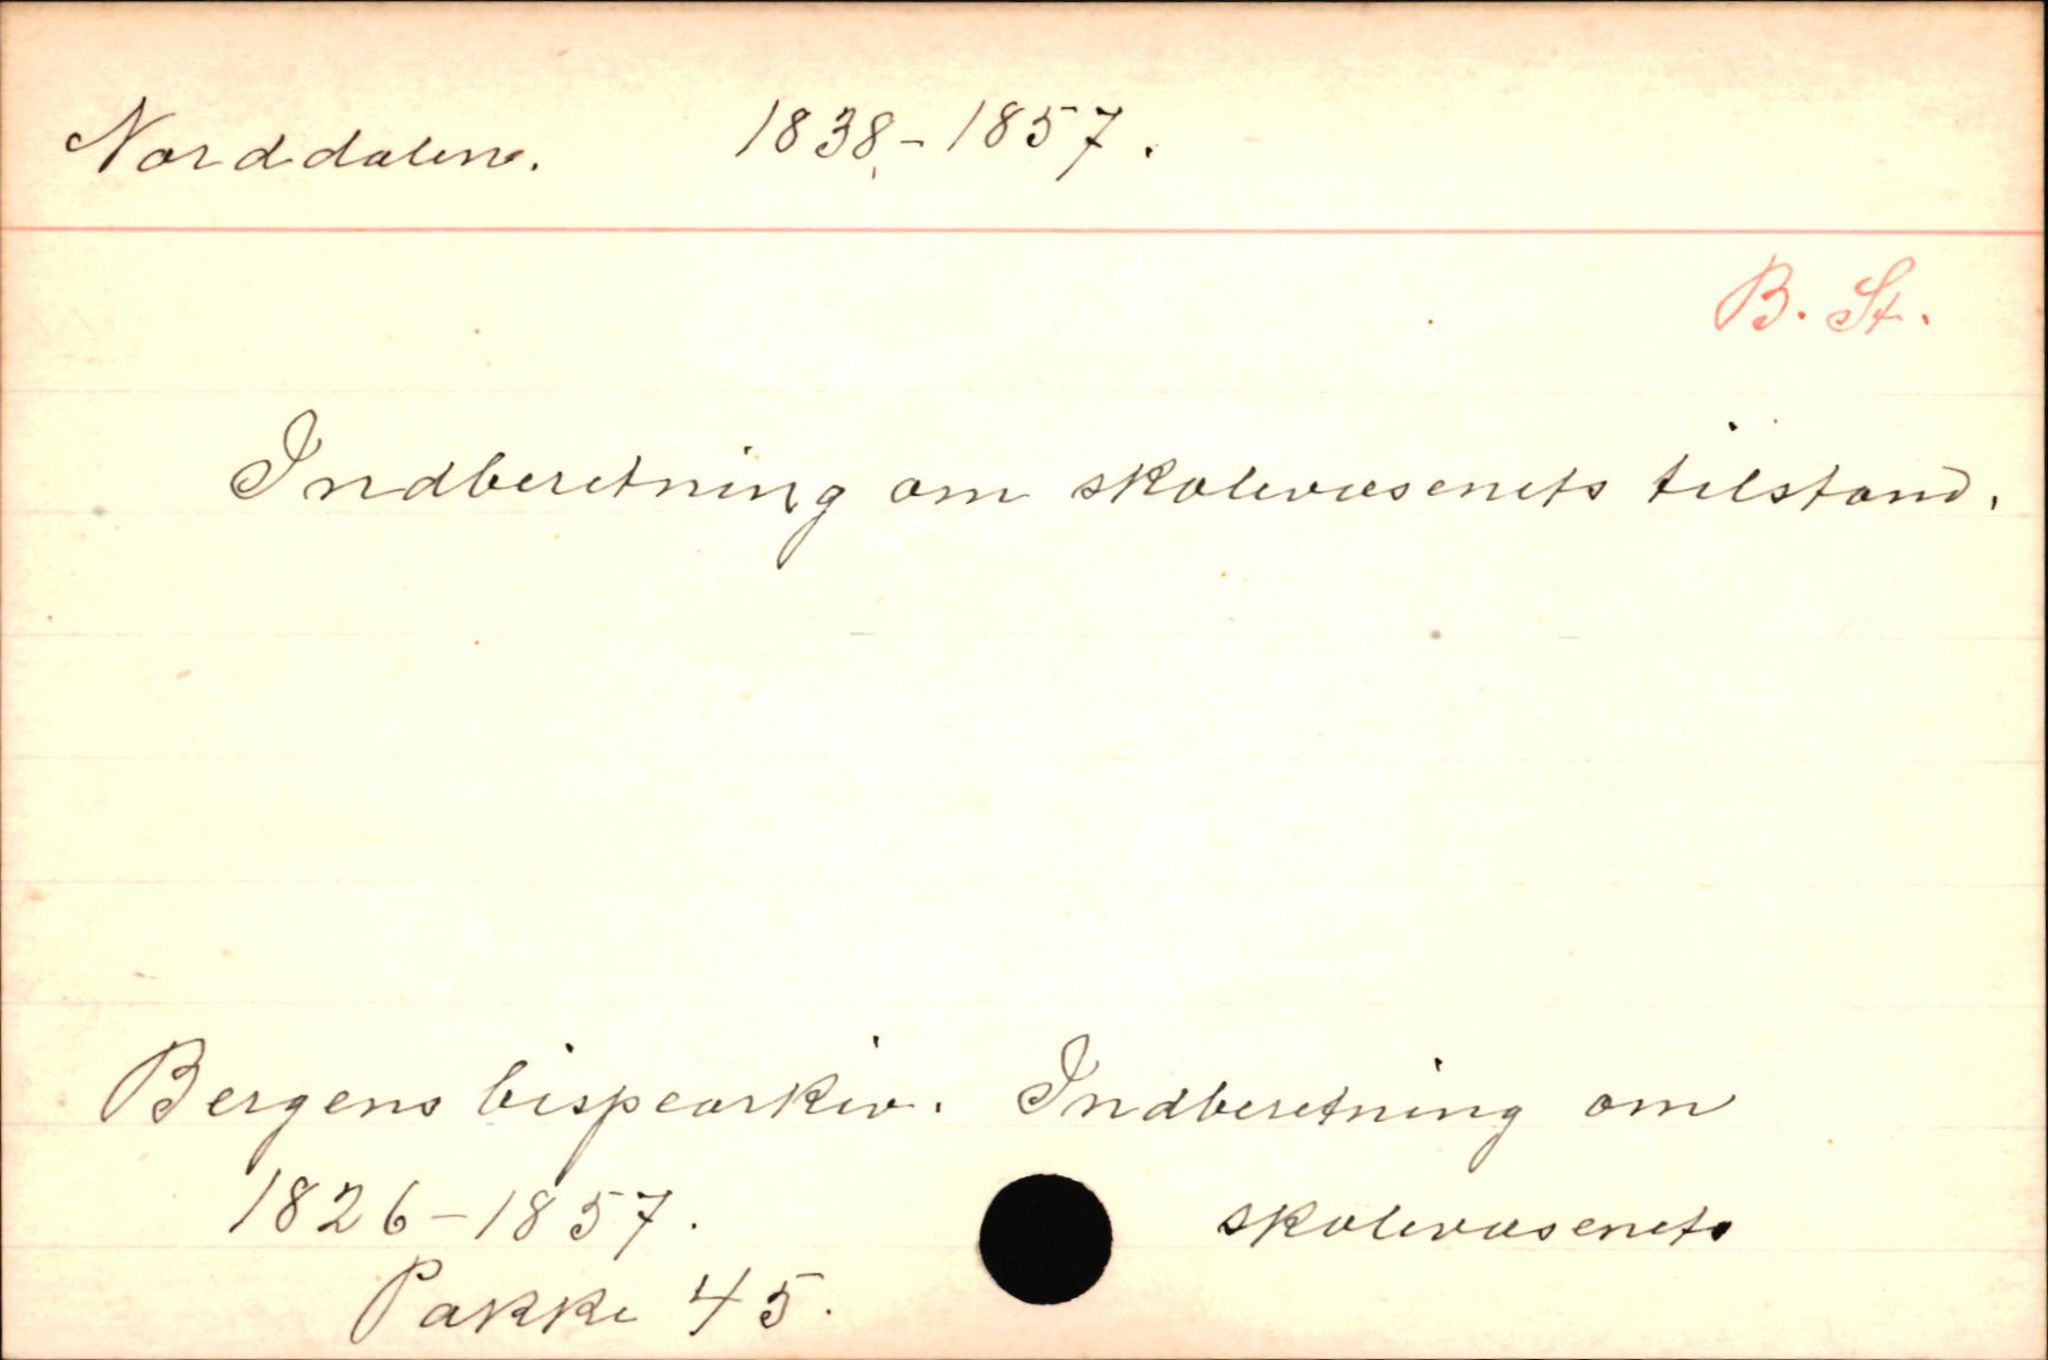 Norddalen. 1838-1857.
B. St.
Indberetning om skolevæsenets tilstand.
Bergens bispearkiv. Indberetning om
1826-1857. skolevæsenets
Pakke 45.